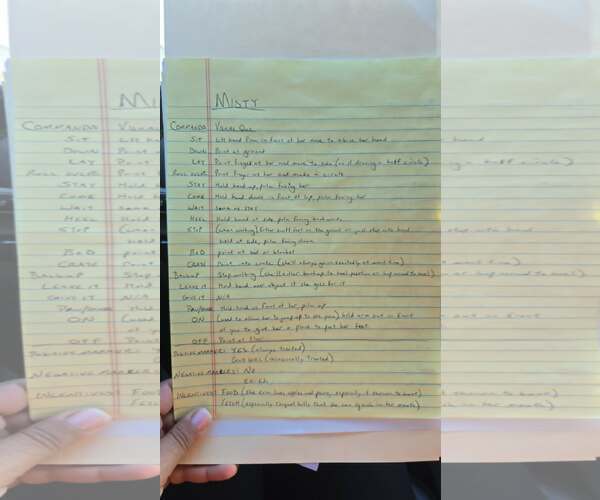 MISTY
COMMANDS VISUAL CUE
SIT Lift hand from in front of her nose to above her head
DOWN Point at ground
LAY Point finger at her and move to side (as if drawing a half circle)
ROLL OVER Point finger at her and make a circle
STAY Hold hand up, palm facing her
COME Hold hand down in front of lap, palm facing her
WAIT Same as stay
HEEL Hold hand at side, palm facing backwards
STOP (when walking) Either butt feet on the ground or just stop with hand
held at side, palm facing down
BED point at bed or blanket
CRATE Point into crate (she'll always go in excitedly at treat time)
BACKUP Stop walking (she'll either backup to heel position or loop around to heel)
LEAVE IT Hold hand over object if she goes for it
GIVE IT N/A
PAW/SHAKE Hold hand in front of her palm up
ON (used to allow her to jump up to see you) hold arm out in front
of you to give her a place to put her feet
OFF Point at floor
POSITIVE MARKER: YES (always treated)
GOOD GIRL (occasionally treated)
NEGATIVE MARKERS: NO
EH-EH
INCENTIVES: FOOD (she even loves apples and pears, especially if thrown to hunt)
FETCH (especially tennis balls that she can squish in the mouth)